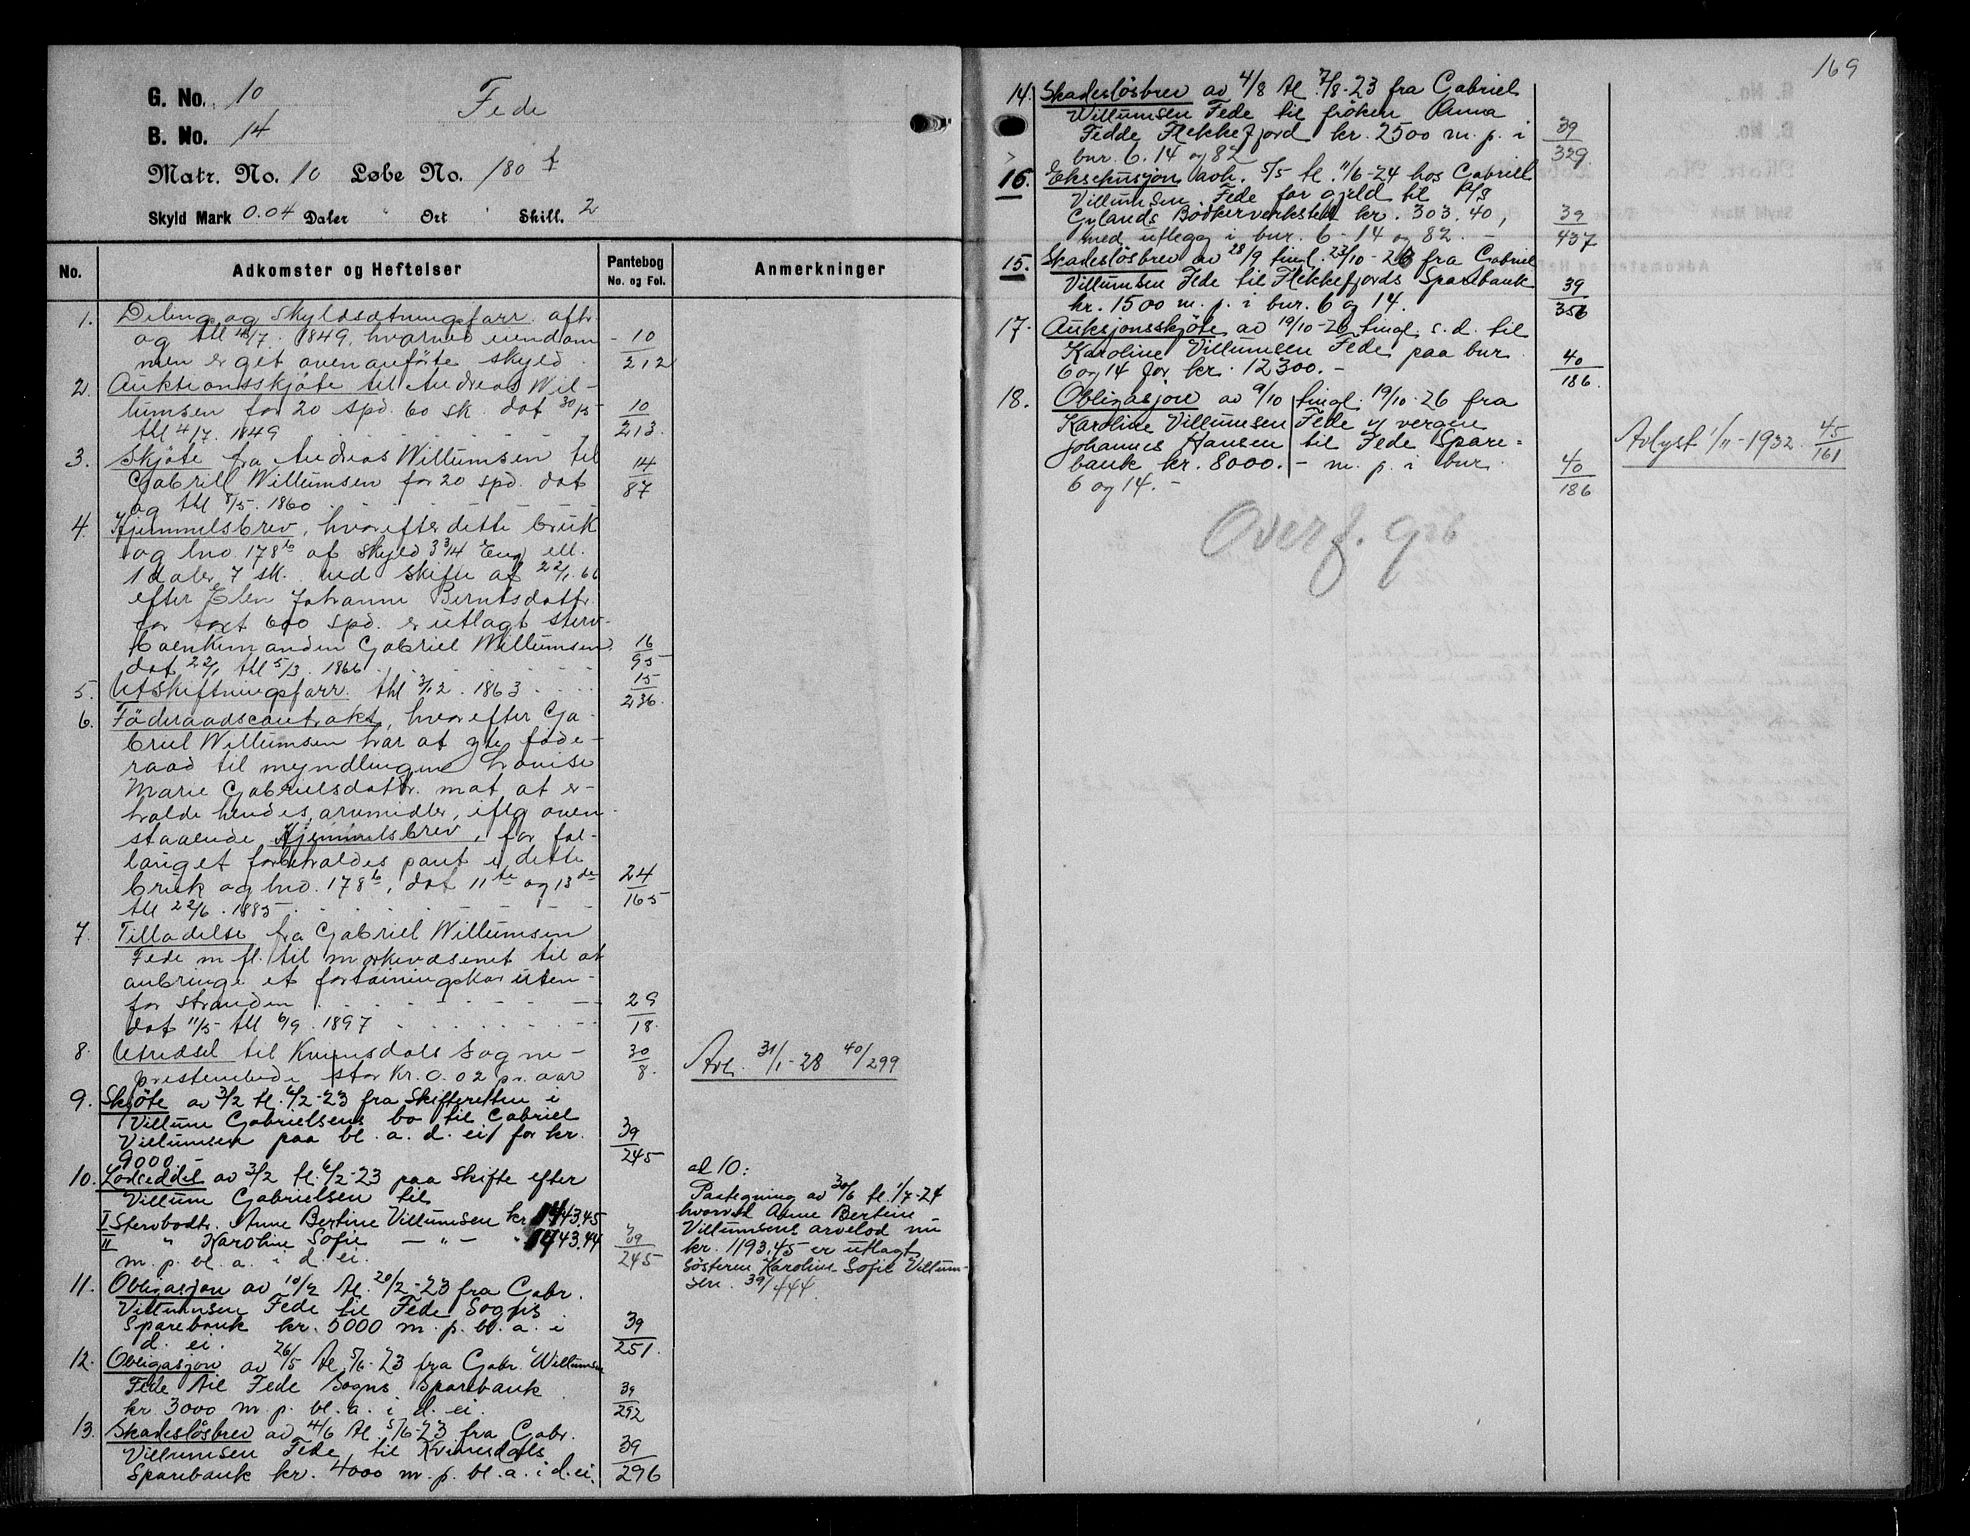 G. No. 10
Fede
B. No. 14
Matr. No. 10 Løbe No. 180 f
Skyld Mark 0.04 Daler " Ort " Skill. 2
No. Adkomster og Heftelser Pantebog No. og Fol. Anmerkninger
1. Delings og Skyldsætningsforr. afh
og thl 4/7. 1849, hvorved eiendom- 10
men er gjet ovenanførte skyld. 212
2. Auktionsskjøte til Andreas Wil-
lumsen for 20 spd. 60 sk. dat 30/5 10
thl 4/7. 1849 213.
3. Skjøte fra Andreas Willumsen til 14
Gabriel Willumsen for 20 spd. dat 87
og thl 8/5. 1860
4. Hjemmelsbrev, hvorefter dette bruk
og lno. 178b af skyld 3 3/4 Eng ell.
1 daler 7 sk. ved skifte af 22/1. 66
efter Elen Johanne Berntsdatter
for taxt 600 spd. er utlagt sterv-
boenkemanden Gabriel Willumsen 16
dat 22/1 thl 5/3. 1866 95
5. Utskiftningsforr. thl 3/12. 1863 15
236.
6. Föderaadscontrakt, hvorefter Ga-
briel Willumsen har at yte føde-
raad til myndlingen Lovise
Marie Gabrielsdatr. mot at er-
holde hendes arvmidler, iflg oven-
staaende Hjemmelsbrev, for fol-
laget forbeholdes pant i dette
bruk og lno. 178b, dat 11te og 13de 24
thl 22/6. 1885 165
7. Tilladelse fra Gabriel Willumsen
Fede m fl. til merkevæsenet til at
anbringe et fortøiningskar uten-
for stranden 29
dat 11/5 thl 6/9. 1897 18.
8. Utredsel til Kvinesdals Sogne- 30
presteembede stor Kr. 0.02 pr. aar 8.
Avl. 31/1-28 40/299
9. Skjöte av 3/2 tl. 6/2-23 fra Skifteretten i
Villum Gabrielsens bo til Gabriel
Villumsen paa bl. a. d. ei for kr. 39
9000. 245
10. Lodseddel av 3/2 tl. 6/2-23 paa Skifte efter
Villum Gabrielsen til
I Stervbodtr. Anne Bertine Villumsen kr 1443,45
II " Karoline Sofie — " — " 1443,44 39
m. p. bl. a. i d. ei. 245
ad 10:
Paategning av 30/6 tl. 1/7-24
hvorved Anne Bertine
Villumsens arvelod nu
kr. 1193,45 er utlagt
Søsteren Karoline Sofie Villum-
sen. 39/444.
11. Obligasjon av 10/2 tl. 20/2-23 fra Gabr.
Villumsen Fede til Fede Sogns
Sparebank kr. 5000 m. p. bl. a. i 39
d. ei. 251.
12. Obligasjon av 26/5 tl. 5/6-23 fra Gabr. Willumsen
Fede til Fede Sogns Sparebank 39
kr. 3000 m. p. bl. a. i d. ei. 292
13. Skadesløsbrev av 4/6 tl. 5/6-23 fra Gabr.
Villumsen Fede til Kvinesdals 39
Sparebank kr. 4000 m. p. bl. a. i d. ei. 296
169
14. Skadesløsbrev av 4/8 tl. 7/8-23 fra Gabriel
Willumsen Fede til frøken Anna
Fedde Flekkefjord kr. 2500 m. p. i 39
bnr. 6. 14 og 82 329.
16. Eksekusjon avh. 5/5 tl. 11/6-24 hos Gabriel
Villumsen Fede for gjeld til A/S
Gylands Bødkerverksted kr. 303.40, 39
med utlegg i bnr. 6-14 og 82. - 437
15. Skadesløsbrev av 28/9 tingl. 23/10-23 fra Gabriel
Villumsen Fede til Flekkefjords Sparebank 39
kr. 1500 m. p. i bnr. 6 og 14. 356
17. Auksjonsskjöte av 19/10-26 tingl. s. d. til
Karoline Villumsen Fede paa bnr 40
6 og 14 for kr. 12300.- 186.
18. Obligasjon av 9/10 tingl. 19/10-26 fra
Karoline Villumsen Fede v/ vergen
Johannes Hansen til Fede Spare-
bank kr. 8000.- m. p. i bnr. 40
6 og 14.- 186
Avlyst 1/11-1932 45/161
Overf.